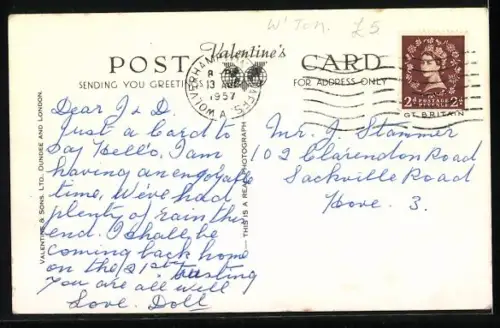 W'Ton. £5
POST Valentine's CARD
SENDING YOU GREETING FOR ADDRESS ONLY
WOLVERHAMPTON STAFFS.
13 AUG
1957
A
2d POSTAGE REVENUE 2d
GT. BRITAIN
VALENTINE & SONS. LTD., DUNDEE AND LONDON.
THIS IS A REAL PHOTOGRAPH
Dear J & D.
Just a Card to
Say Hello, I am
having an enjoyable
time, We've had
plenty of rain this
end. I shall be
coming back home
on the 21st trusting
you are all well
Love. Doll
Mr. J. Stanmer
102 Clarendon Road
Sackville Road
Hove. 3.